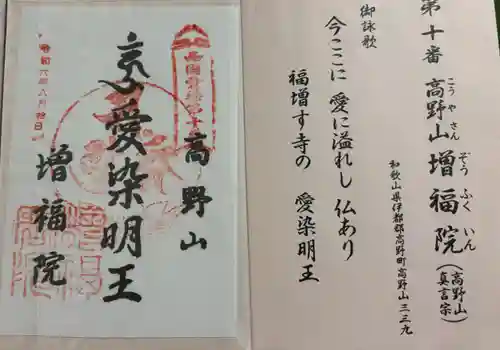 第十番 高野山 増福院 (高野山真言宗)
こうやさん ぞうふくいん
和歌山県伊都郡高野町高野山三三九
御詠歌
今ここに 愛に溢れし 仏あり
福増す寺の 愛染明王
高野山
愛染明王
増福院
令和六年八月拾日